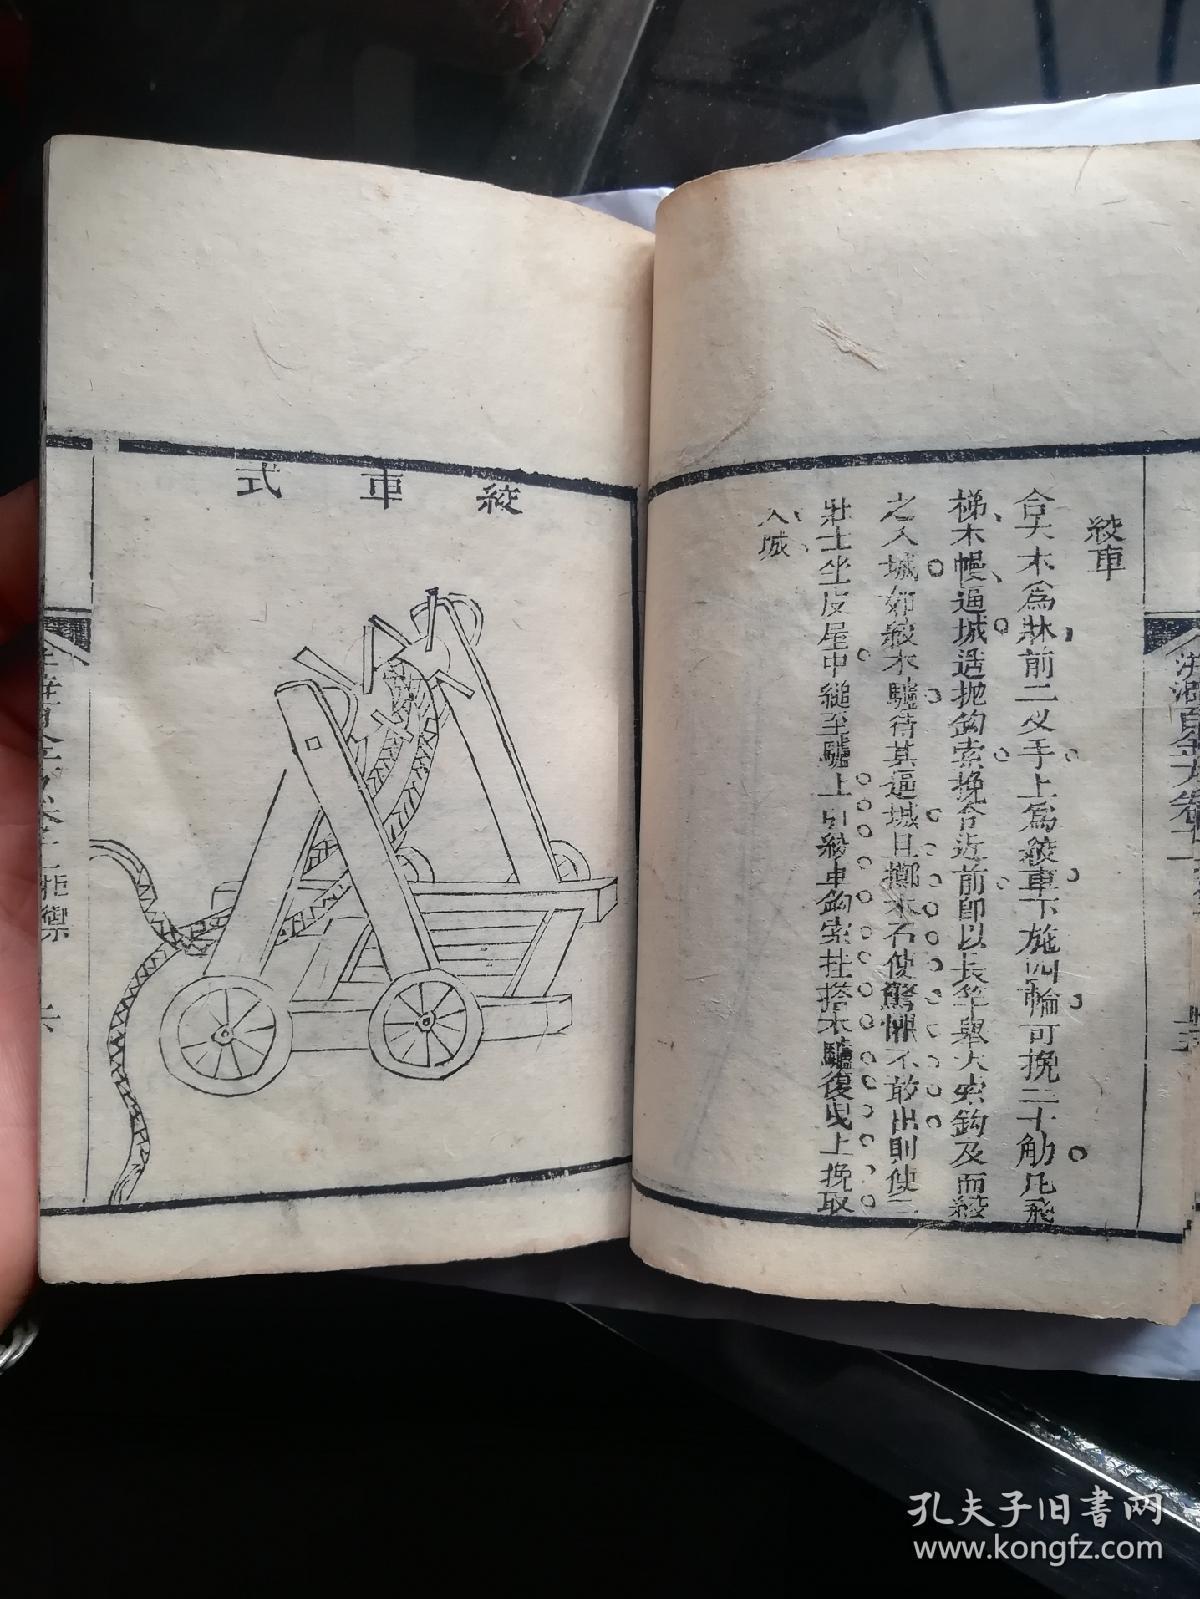 百金方卷
絞車
合大木爲牀前二义手上爲絞車下施四輪可挽二十觔凡飛
梯木幔逼城迄抛鈎索挽令近前即以長竿舉大索鈎及而絞
之入城如絞木驢待其逼城且擲木石使驚懼不敢出則使二
壯士坐皮屋中縋至驢上引絞車鈎索拄搭木驢復曳上挽取
入城
絞車式
拒禦
六
孔夫子旧书网
www.kongfz.com